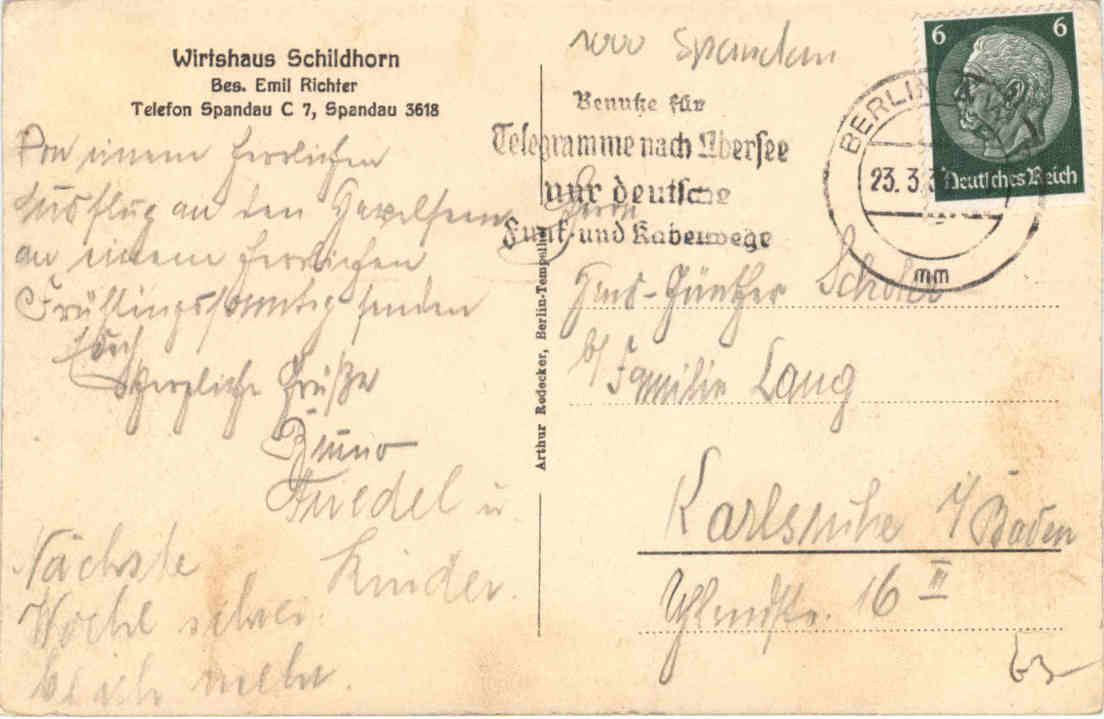 Wirtshaus Schildhorn
Bes. Emil Richter
Telefon Spandau C 7, Spandau 3618
Von einem herrlichen
Ausflug an den Havelseen
an einem herrlichen
Frühlingssonntag senden
Euch
herzliche Grüße
Bruno
Friedel u.
Kinder.
Nächste
Woche schrei-
be ich mehr.
Arthur Rodecker, Berlin-Tempelhof
Spandau
Benutze für
Telegramme nach Übersee
nur deutsche
Funk- und Kabelwege
BERLIN
23. 3. 3
mm
6 6
Deutsches Reich
Herrn
Hans-Günther
b/ Familie Lang
Karlsruhe i/Baden
Uhlandstr. 16 III